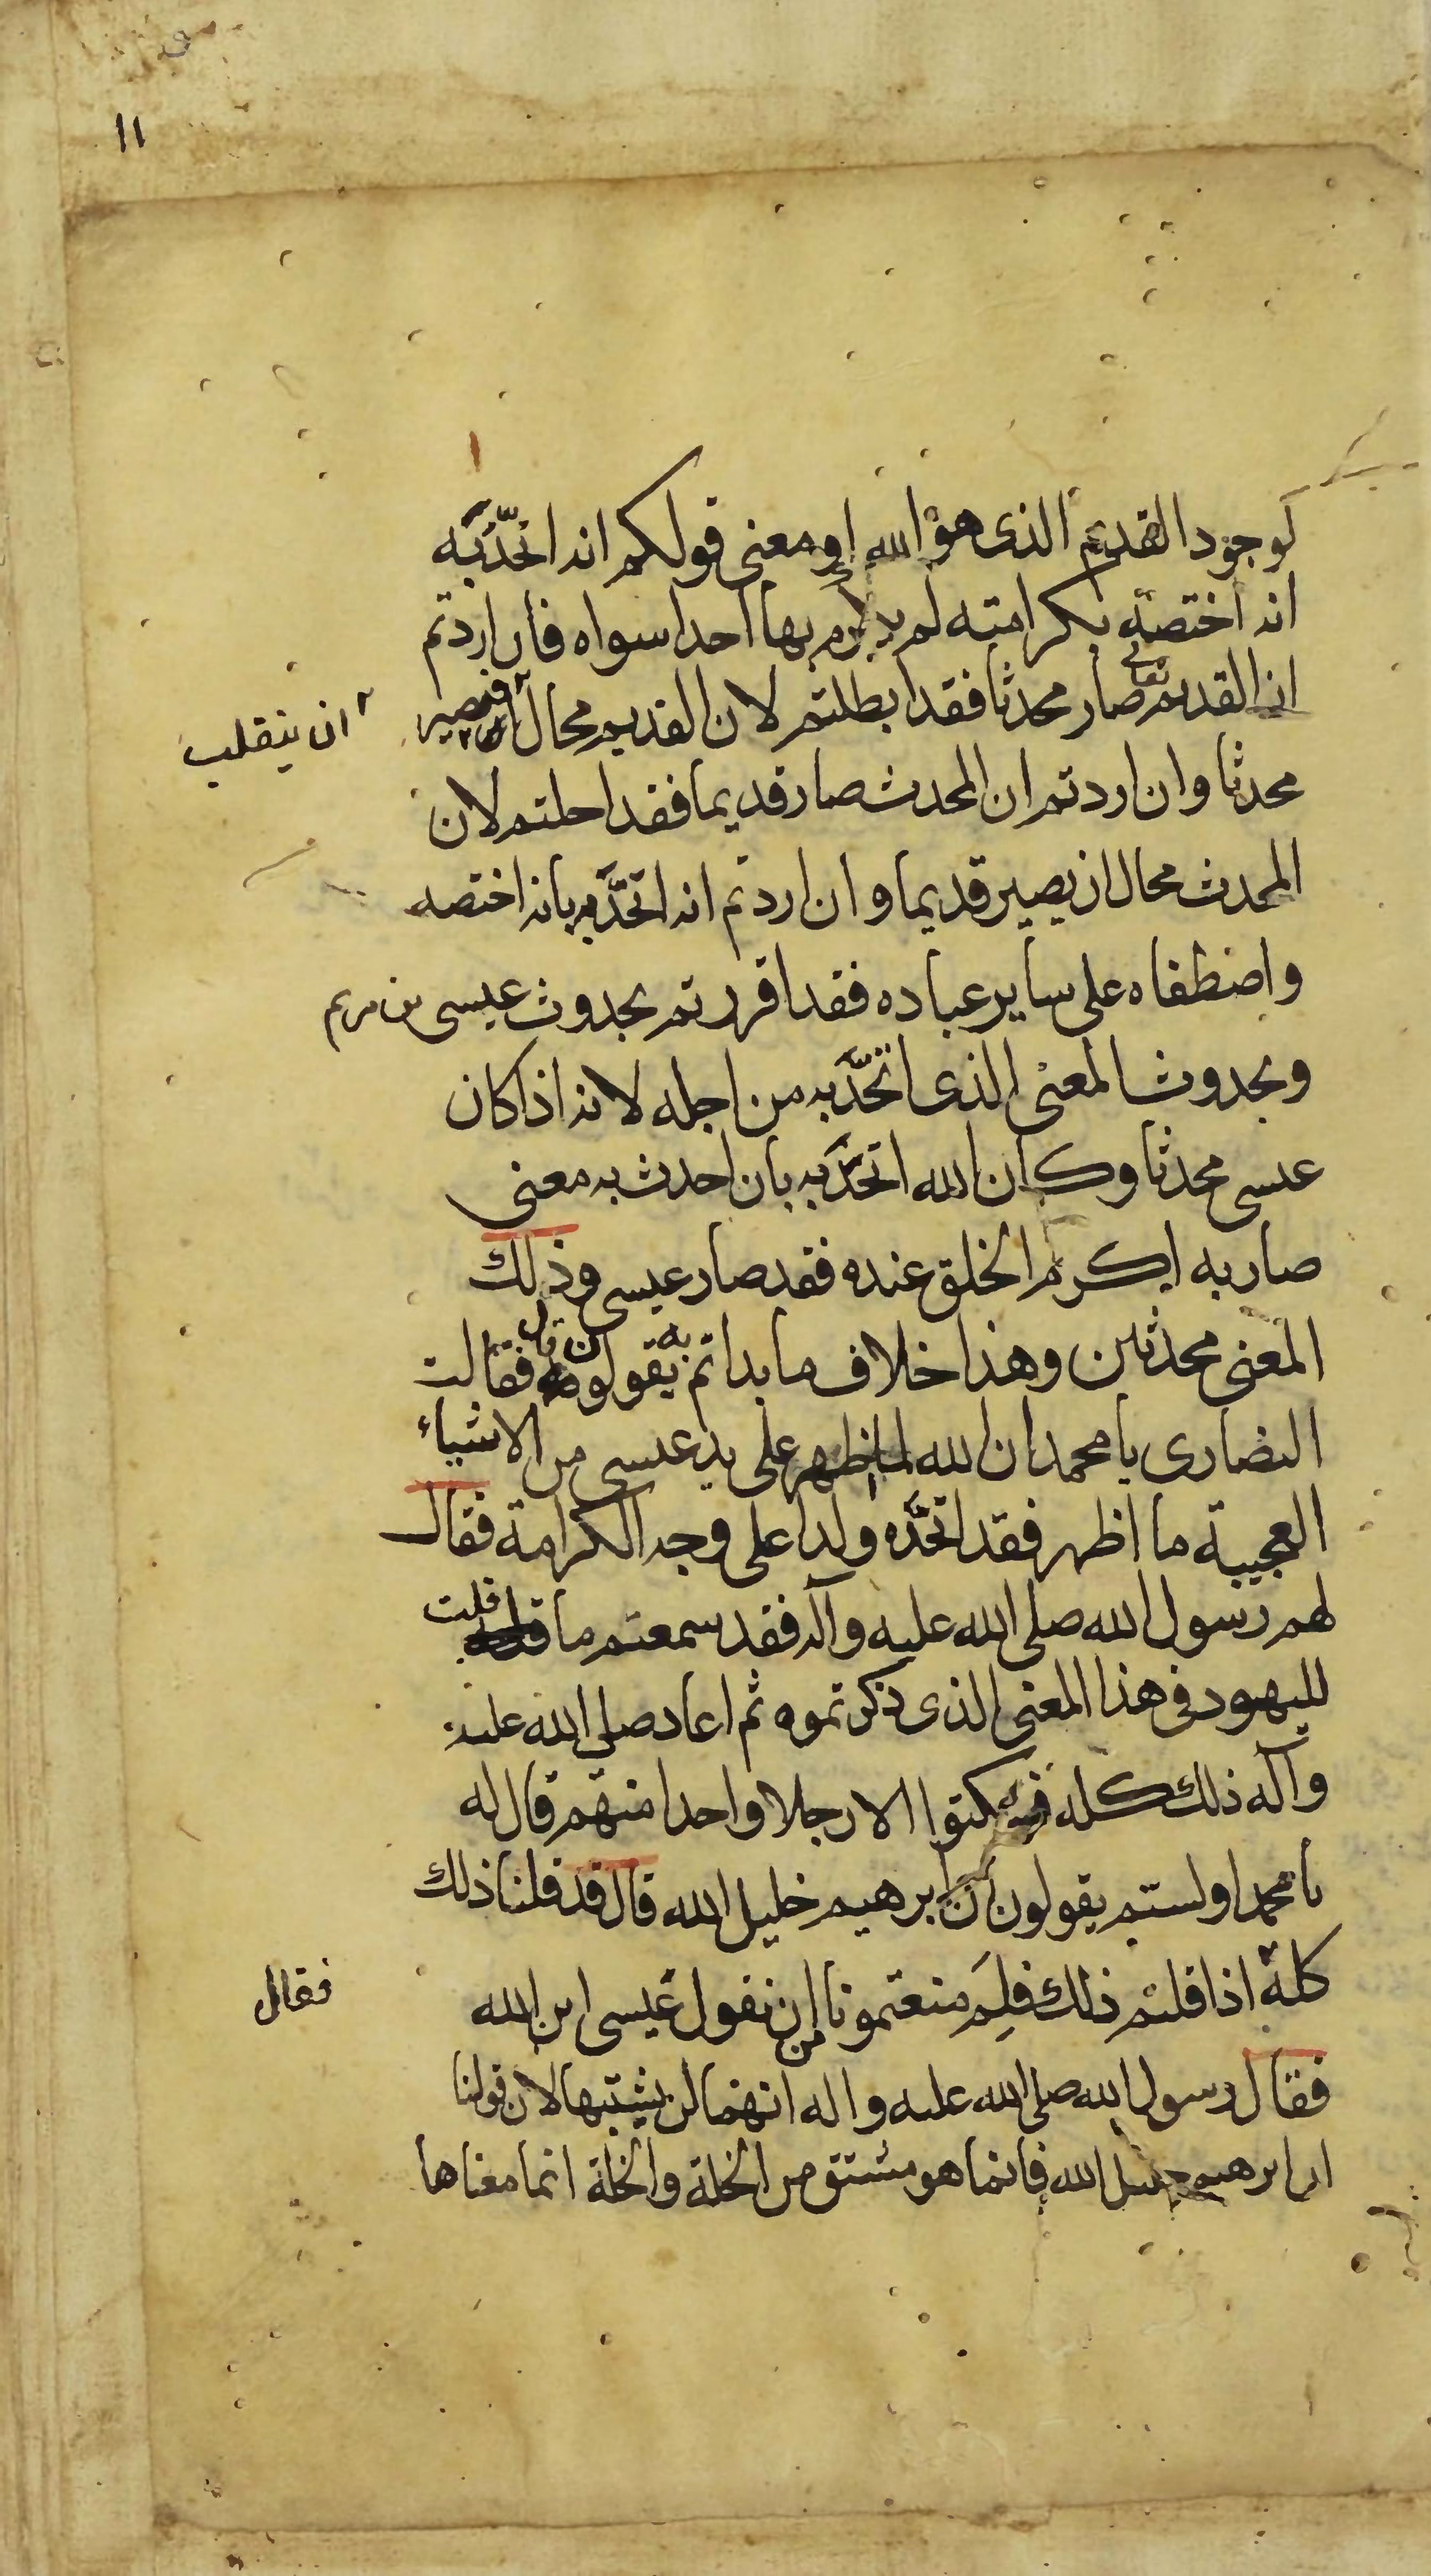 ١١
كوجود القديم الذى هو الله او معنى قولكم انه اتحد به
انه اختصه بكرامته لم يكرم بها احدا سواه فان اردتم
ان القديم تعالى صار محدثا فقد ابطلتم لان القديم محال ان يصير
ان ينقلب
محدثا وان اردتم ان المحدث صار قديما فقد احلتم لان
المحدث محال ان يصير قديما وان اردتم انه اتحد به بانه اختصه
واصطفاه على ساير عباده فقد اقررتم بحدوث عيسى بن مريم
وبحدوث المعنى الذى اتحد به من اجله لانه اذا كان
عيسى محدثا وكان الله اتحد به بان احدث به معنى
صار به اكرم الخلق عنده فقد صار عيسى وذلك
المعنى محدثين وهذا خلاف ما بداتم به يقولون قال فقالت
النصارى يا محمد ان الله لما اظهر على يد عيسى من الاشياء
العجيبة ما اظهر فقد اتخذه ولدا على وجه الكرامة فقال
لهم رسول الله صلى الله عليه وآله فقد سمعتم ما قلت
لليهود فى هذا المعنى الذى ذكرتموه ثم اعاد صلى الله عليه
وآله ذلك كله فسكتوا الا رجلا واحدا منهم قال له
يا محمد اولستم يقولون ان ابرهيم خليل الله قال قد قلنا ذلك
فقال
كله اذا قلتم ذلك فلم منعتمونا من ان نقول عيسى ابن الله
فقال رسول الله صلى الله عليه واله انهما لن يشتبها لان قولنا
ان ابرهيم خليل الله فانما هو مشتق من الخلة والخلة انما معناها